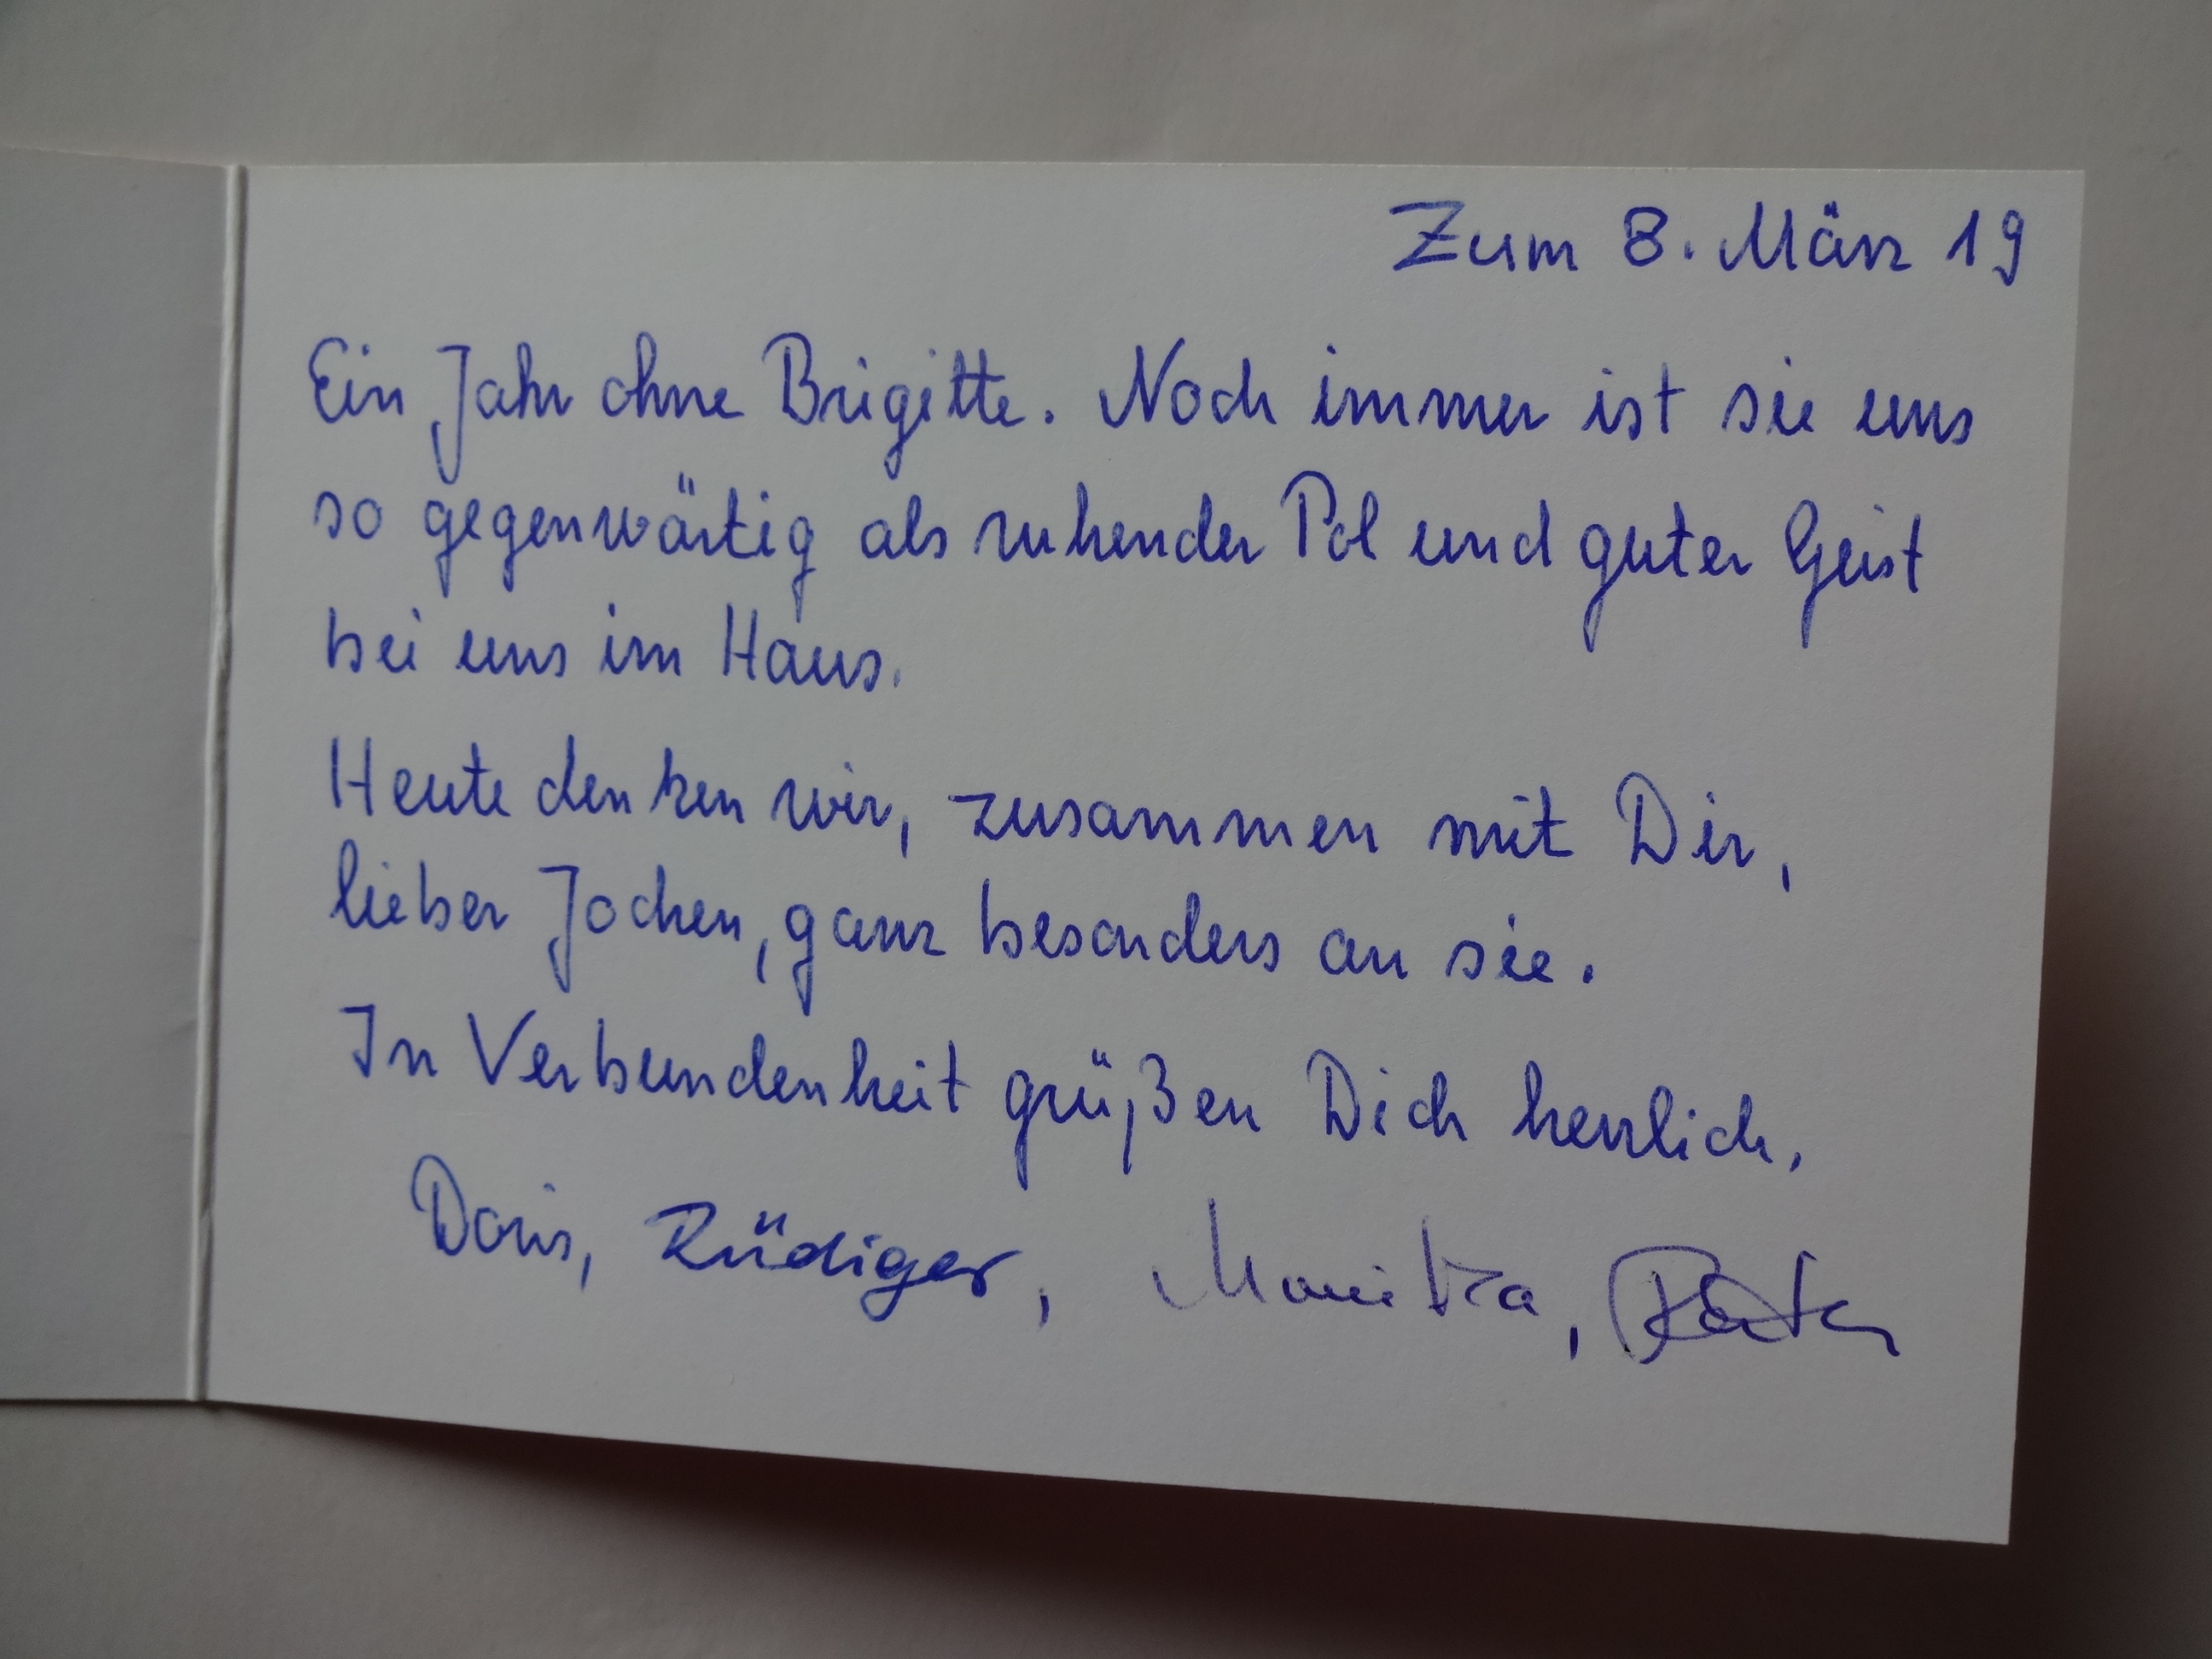 Zum 8. März 19
Ein Jahr ohne Brigitte. Noch immer ist sie uns
so gegenwärtig als ruhender Pol und guter Geist
bei uns im Haus.
Heute denken wir, zusammen mit Dir,
lieber Jochen, ganz besonders an sie.
In Verbundenheit grüßen Dich herzlich,
Doris, Rüdiger, Monika,